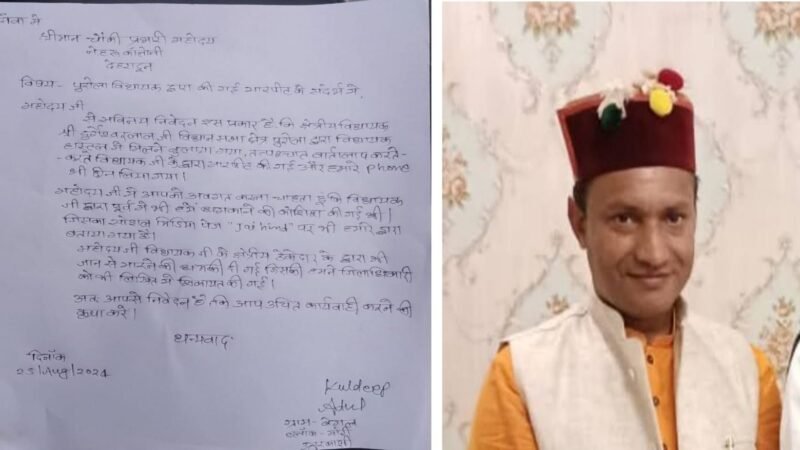 सेवा में
श्रीमान चौकी प्रभारी महोदय
नेहरू कॉलोनी
देहरादून
विषय - पुरोला विधायक द्वारा की गई मारपीट के संदर्भ में,
महोदय जी
में सविनय निवेदन इस प्रकार है, कि क्षेत्रीय विधायक
श्री दुर्गेश्वर लाल जी विधान सभा क्षेत्र पुरोला द्वारा विधायक
हास्टल में मिलने बुलाया गया, तत्पश्चात वार्तालाप करते-
करते विधायक जी के द्वारा मारपीट की गई और हमारे phone
भी छीन लिया गया।
महोदय जी में आपको अवगत करना चाहता हूं कि विधायक
जी द्वारा पूर्व में भी हमें की कोशिश की गई थी।
जिसका सोशल मिडिया पेज "Jai hind" पर भी हमारे द्वारा
बताया गया है।
महोदय जी विधायक जी के क्षेत्रीय ठेकेदार के द्वारा भी
जान से मारने की धमकी दी गई जिसकी हमने जिलाधिकारी
को भी लिखित में शिकायत की गई।
अतः आपसे निवेदन है कि आप उचित कार्यवाही करने की
कृपा करें।
धन्यवाद
दिनाँक
23/Aug/2024
Kuldeep
Atul
ग्राम-
ब्लॉक- मोरी
उत्तरकाशी